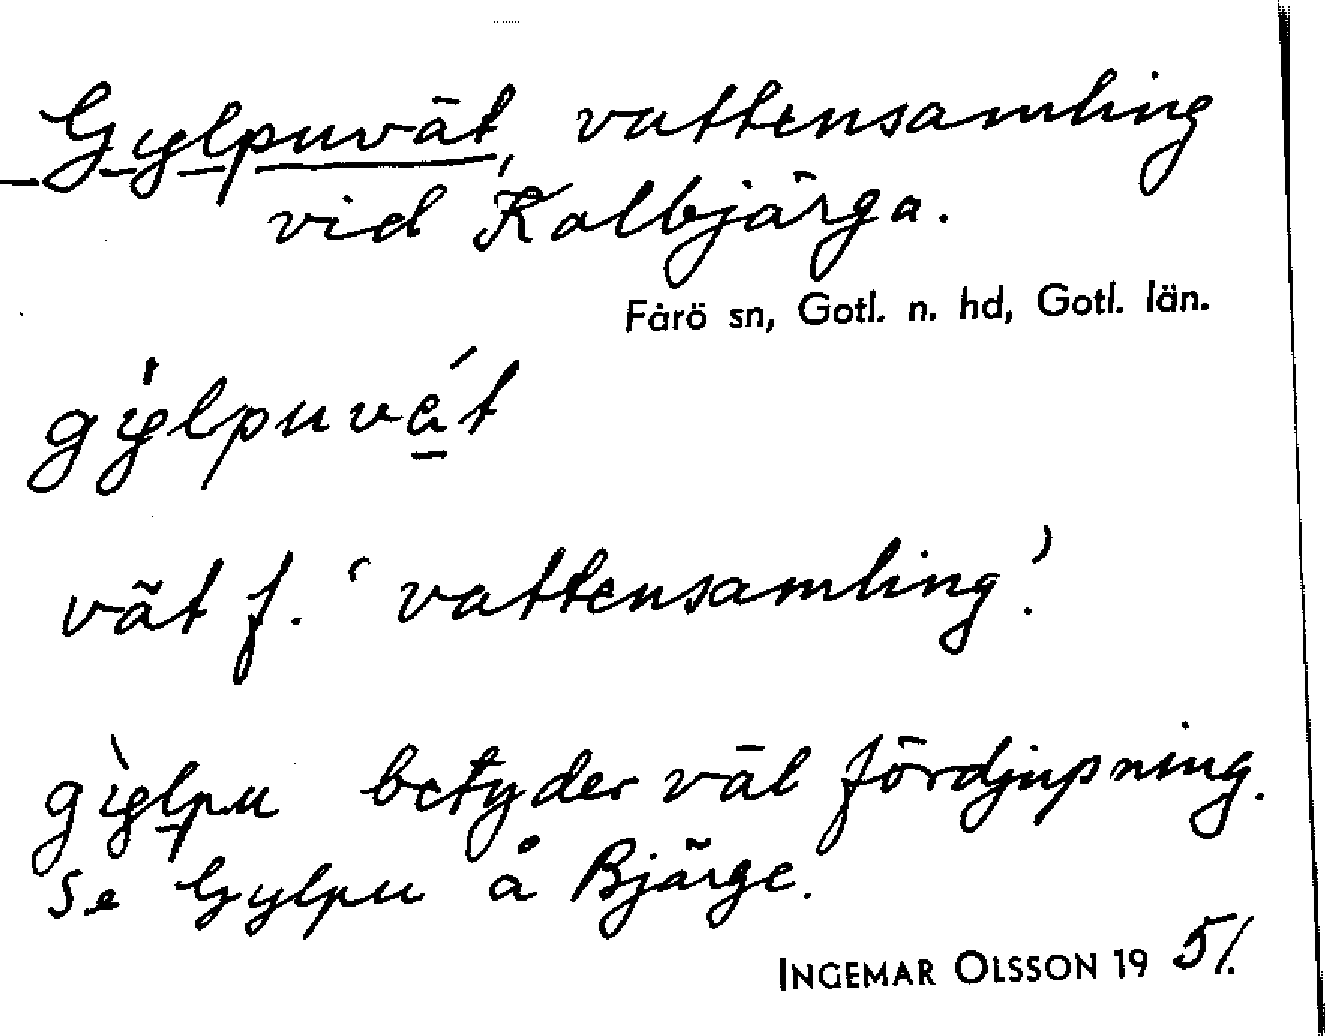 Gylpuvät, vattensamling
vid Kalbjärga.
Fårö sn, Gotl. n. hd, Gotl. län.
gy̍lpuvá̱t
vät f. ‘vattensamling’.
gỳlpu betyder väl fördjupning.
Se Gylpu å Bjärge.
INGEMAR OLSSON 19 51.